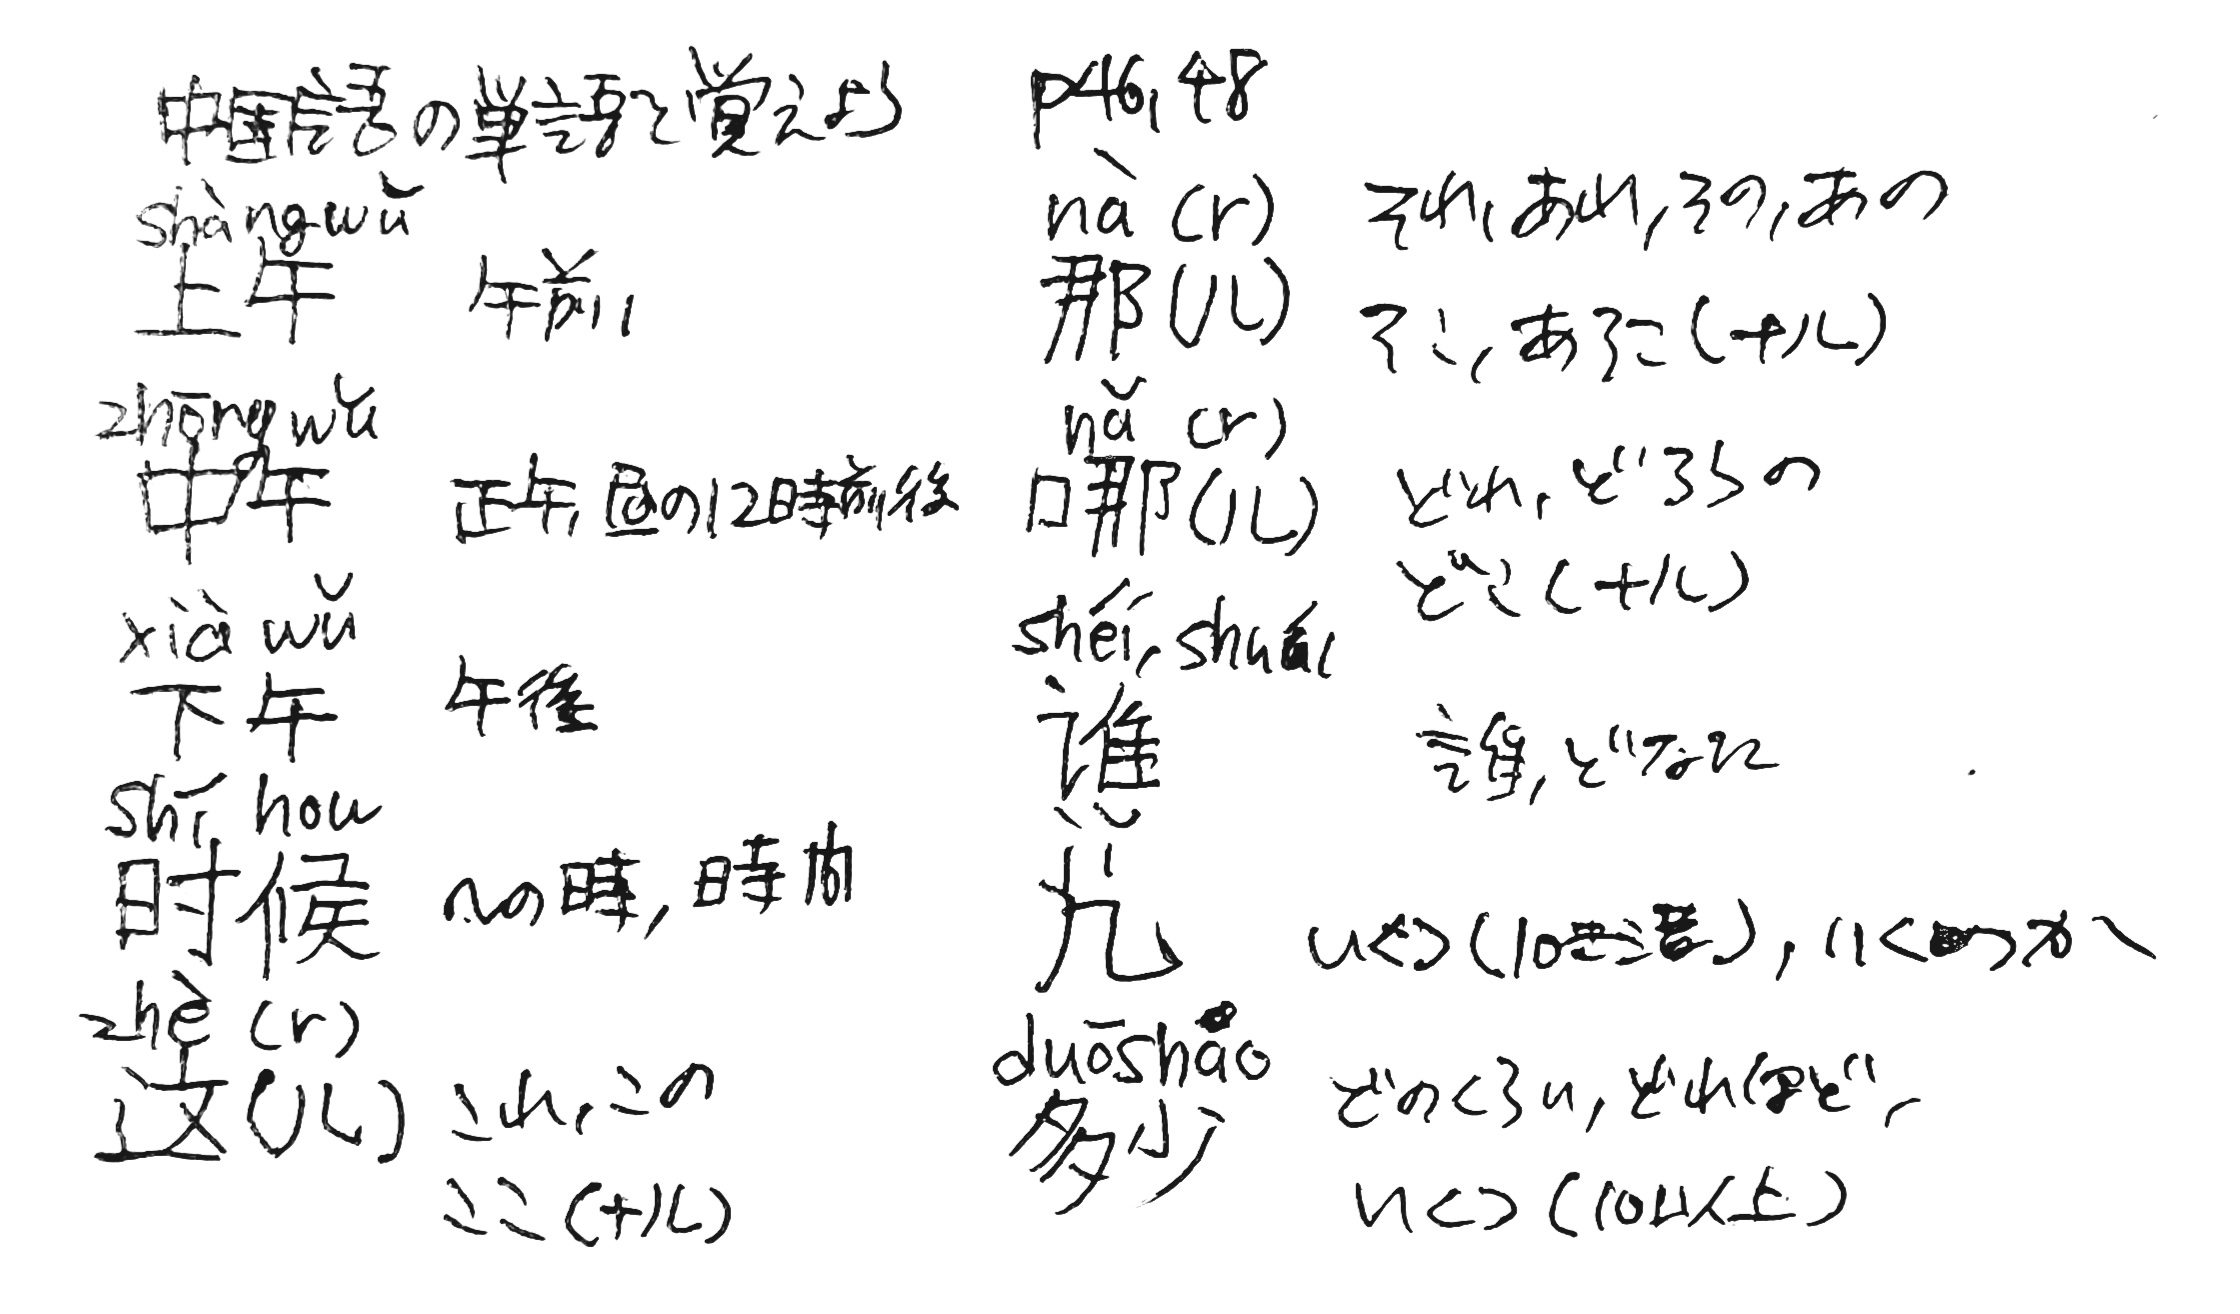 中国語の単語を覚えよう
shàngwǔ
上午 午前
zhōngwǔ
中午 正午, 昼の12時前後
xià wǔ
下午 午後
shí hou
时候 〜の時, 時間
zhè (r)
这(儿) これ, この
ここ(+儿)
p46, 48
nà (r) それ, あれ, その, あの
那(儿) そこ, あそこ(+儿)
nǎ (r)
哪(儿) どれ, どちらの
どこ(+儿)
shéi, shuí
谁 誰, どなた
jǐ
几 いくつ(10まで), いくつか
duōshao
多少 どのくらい, どれほど,
いくつ(10以上)